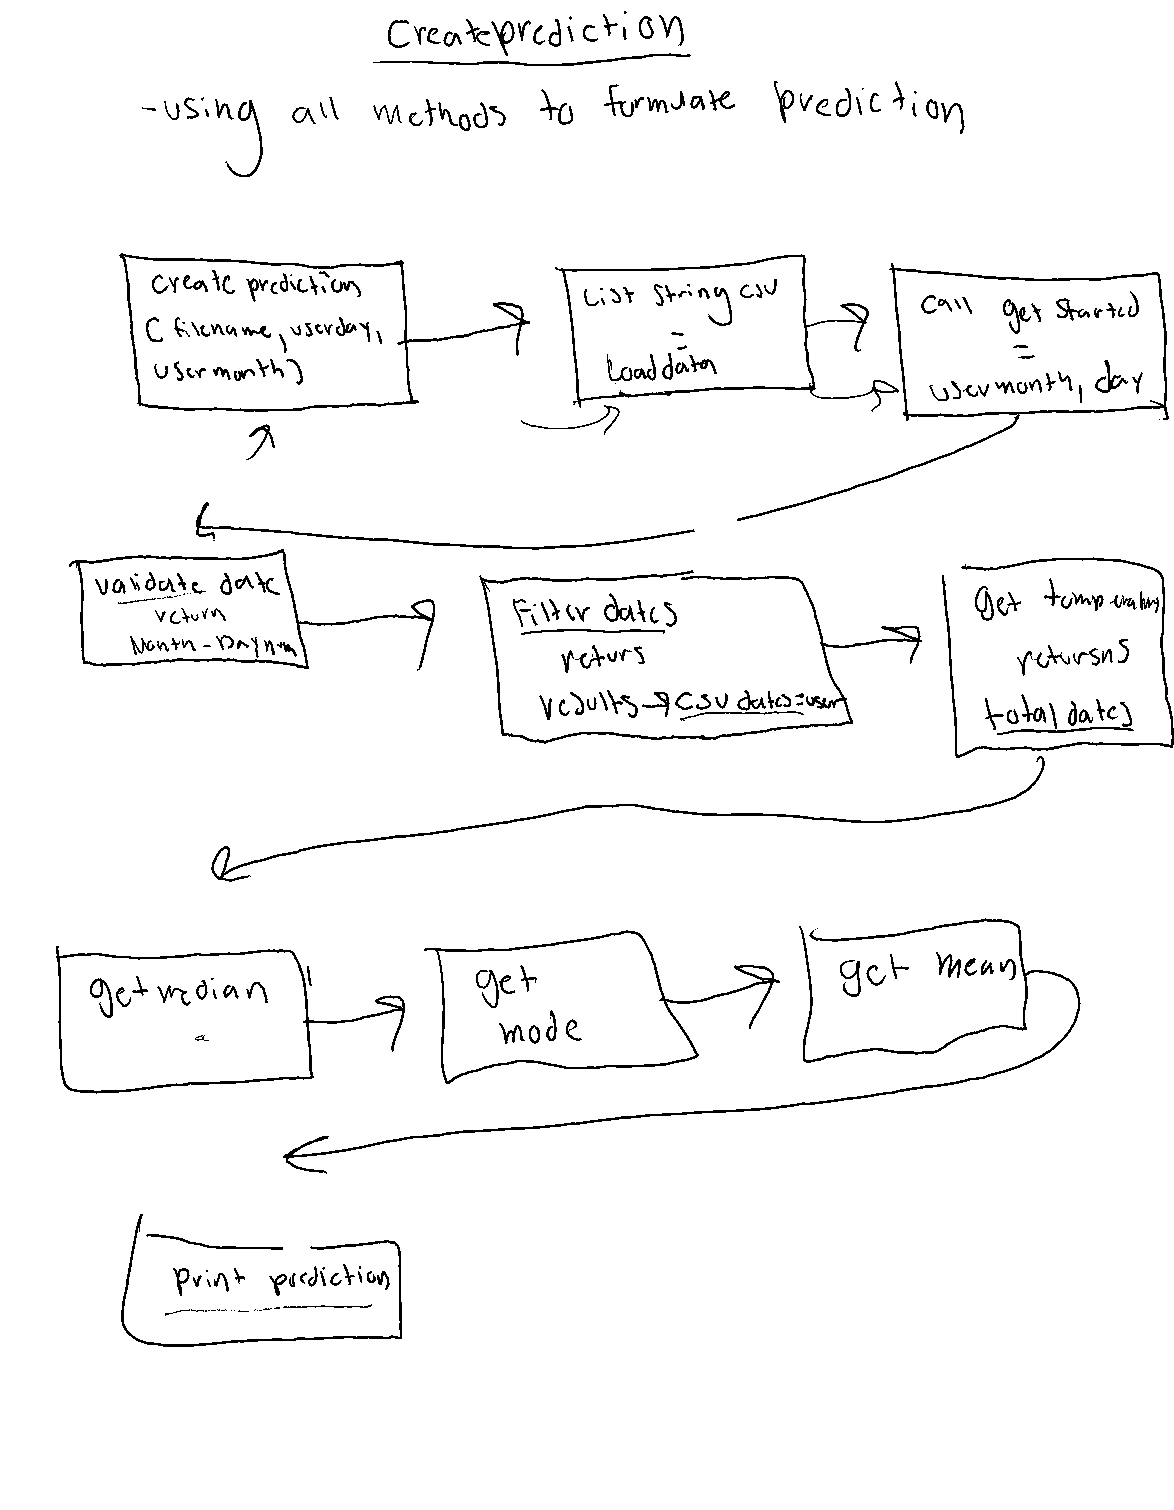 Createprediction
-using all methods to formulate prediction
create prediction
( filename, userday,
usermonth)
List String csv
=
Load data
call get Started
=
usermonth, day
validate date
return
Month-Daynum
Filter dates
returs
results → csv dates = user
Get
retursns
total dates
getmedian
get
mode
get mean
print prediction